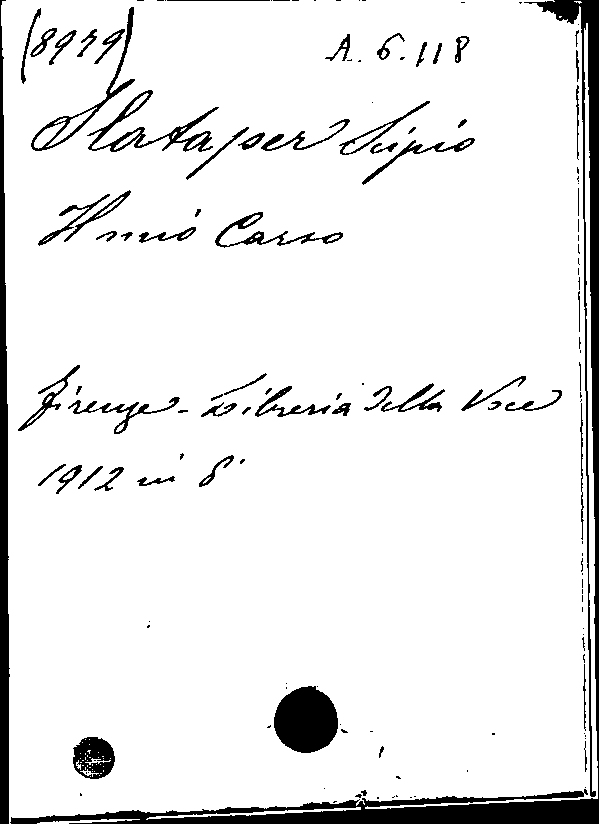 (8979) A. 6. 118
Slataper Scipio
Il mio Carso
Firenze - Libreria della Voce
1912 in 8°